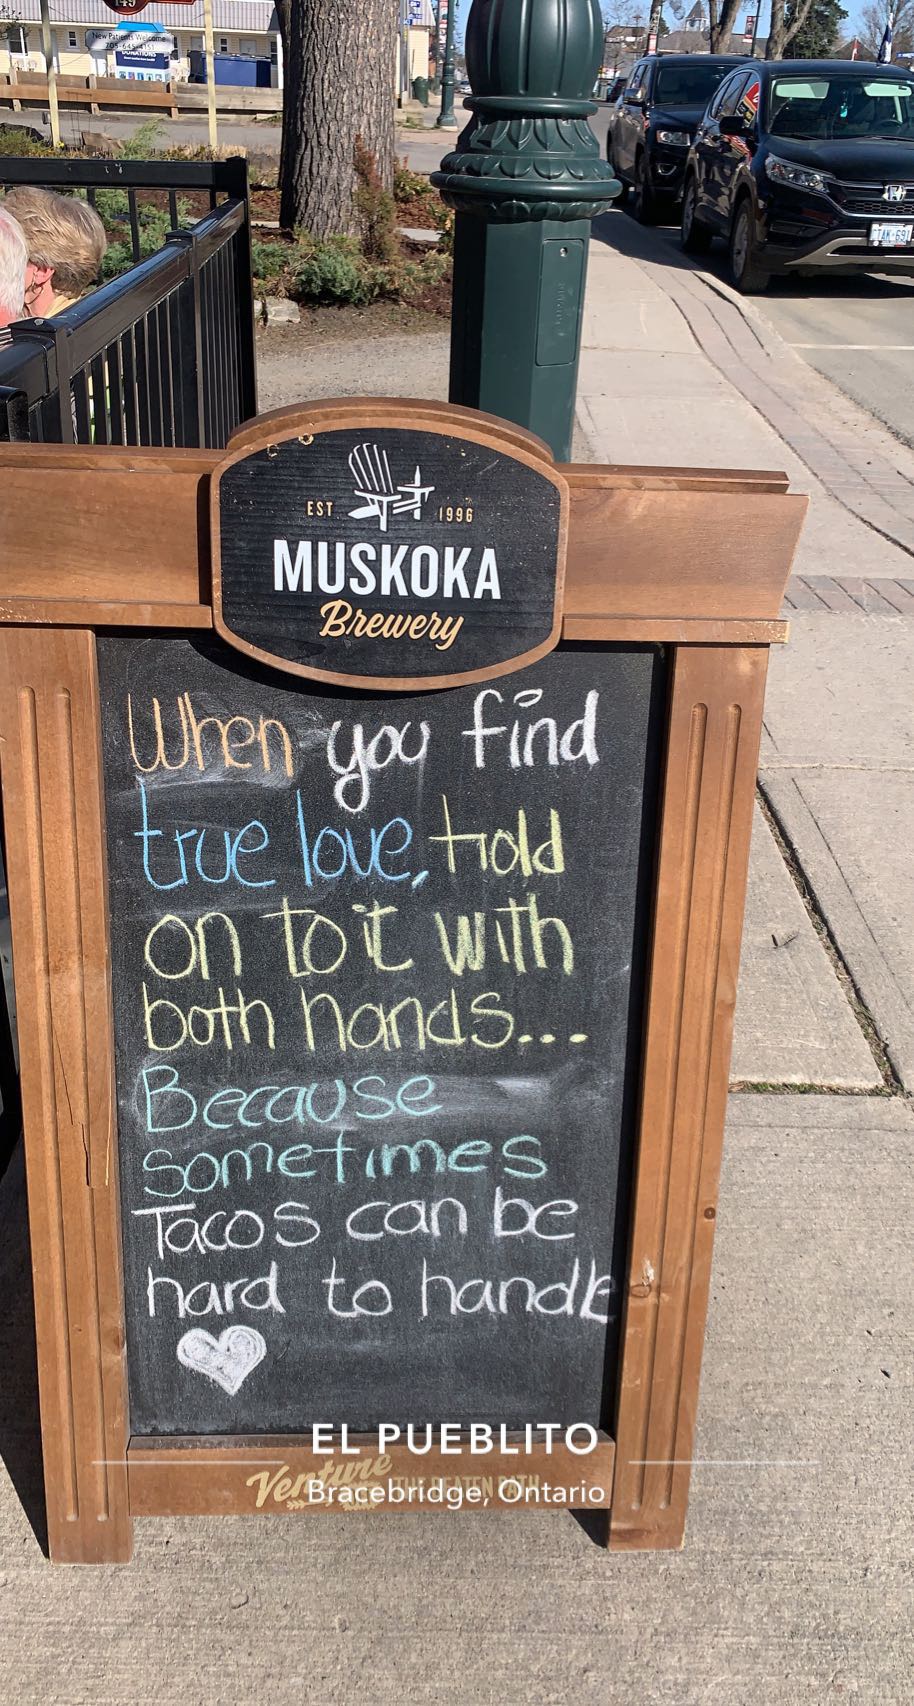 149
New Patients Welcome
DONATIONS
EST 1996
MUSKOKA
Brewery
When you find
true love, hold
on to it with
both hands...
Because
sometimes
Tacos can be
hard to handle
EL PUEBLITO
Venture THE BEATEN PATH
Bracebridge, Ontario